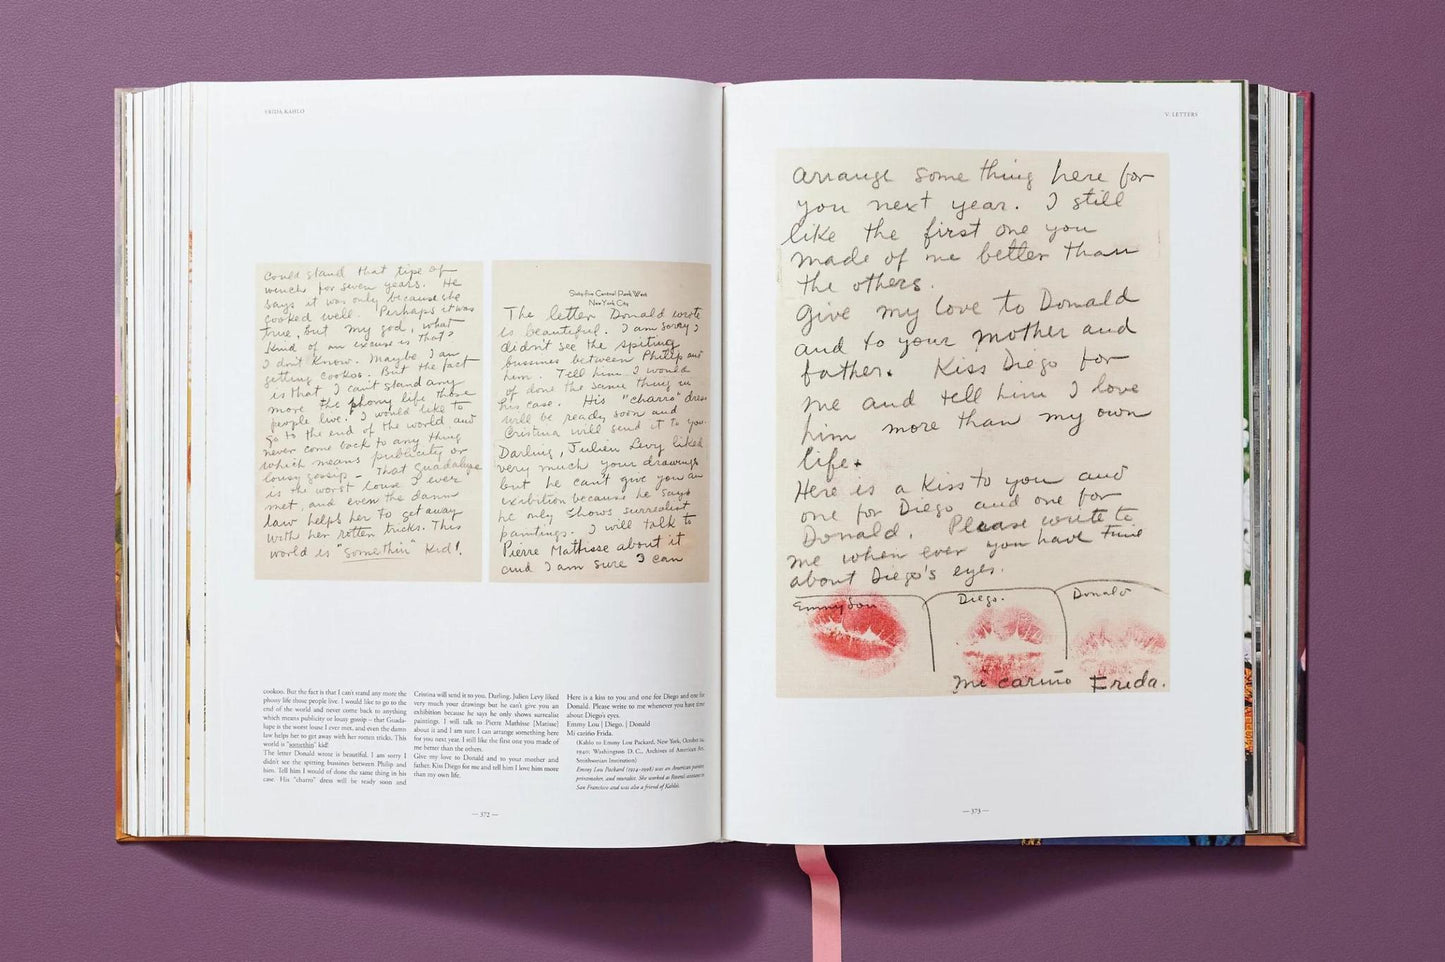 FRIDA KAHLO
could stand that tipe of
wench for seven years. He
says it was only because she
cooked well. Perhaps it was
true, but my god, what
kind of an excuse is that?
I don't know. Maybe I am
getting cookoo. But the fact
is that I can't stand any
more the phony life those
people live. I would like to
go to the end of the world and
never come back to any thing
which means publicity or
lousy gossip - That Guadalupe
is the worst louse I ever
met, and even the damn
law helps her to get away
with her rotten tricks. This
world is "somethin" kid!
Sixty-five Central Park West
New York City
The letter Donald wrote
is beautiful. I am sorry I
didn't see the spiting
bussines between Philip and
him. Tell him I would
of done the same thing in
his case. His "charro" dress
will be ready soon and
Cristina will send it to you.
Darling, Julien Levy liked
very much your drawings
but he can't give you an
exibition because he says
he only shows surrealist
paintings. I will talk to
Pierre Mathisse about it
and I am sure I can
cookoo. But the fact is that I can't stand any more the
phony life those people live. I would like to go to the
end of the world and never come back to anything
which means publicity or lousy gossip – that Guada-
lupe is the worst louse I ever met, and even the damn
law helps her to get away with her rotten tricks. This
world is "somethin" kid!
The letter Donald wrote is beautiful. I am sorry I
didn't see the spitting bussines between Philip and
him. Tell him I would of done the same thing in his
case. His "charro" dress will be ready soon and
Cristina will send it to you. Darling, Julien Levy liked
very much your drawings but he can't give you an
exhibition because he says he only shows surrealist
paintings. I will talk to Pierre Mathisse [Matisse]
about it and I am sure I can arrange something here
for you next year. I still like the first one you made of
me better than the others.
Give my love to Donald and to your mother and
father. Kiss Diego for me and tell him I love him more
than my own life.
Here is a kiss to you and one for Diego and one for
Donald. Please write to me whenever you have time
about Diego's eyes.
Emmy Lou | Diego. | Donald
Mi cariño Frida.
(Kahlo to Emmy Lou Packard, New York, October 24,
1940: Washington D. C., Archives of American Art,
Smithsonian Institution)
Emmy Lou Packard (1914–1998) was an American painter,
printmaker, and muralist. She worked as Rivera's assistant in
San Francisco and was also a friend of Kahlo's.
— 372 —
V. LETTERS
arrange some thing here for
you next year. I still
like the first one you
made of me better than
the others.
Give my love to Donald
and to your mother and
father. Kiss Diego for
me and tell him I love
him more than my own
life.
Here is a kiss to you and
one for Diego and one for
Donald. Please write to
me when ever you have time
about Diego's eyes.
Emmy Lou
Diego.
Donald
Mi cariño Frida.
— 373 —